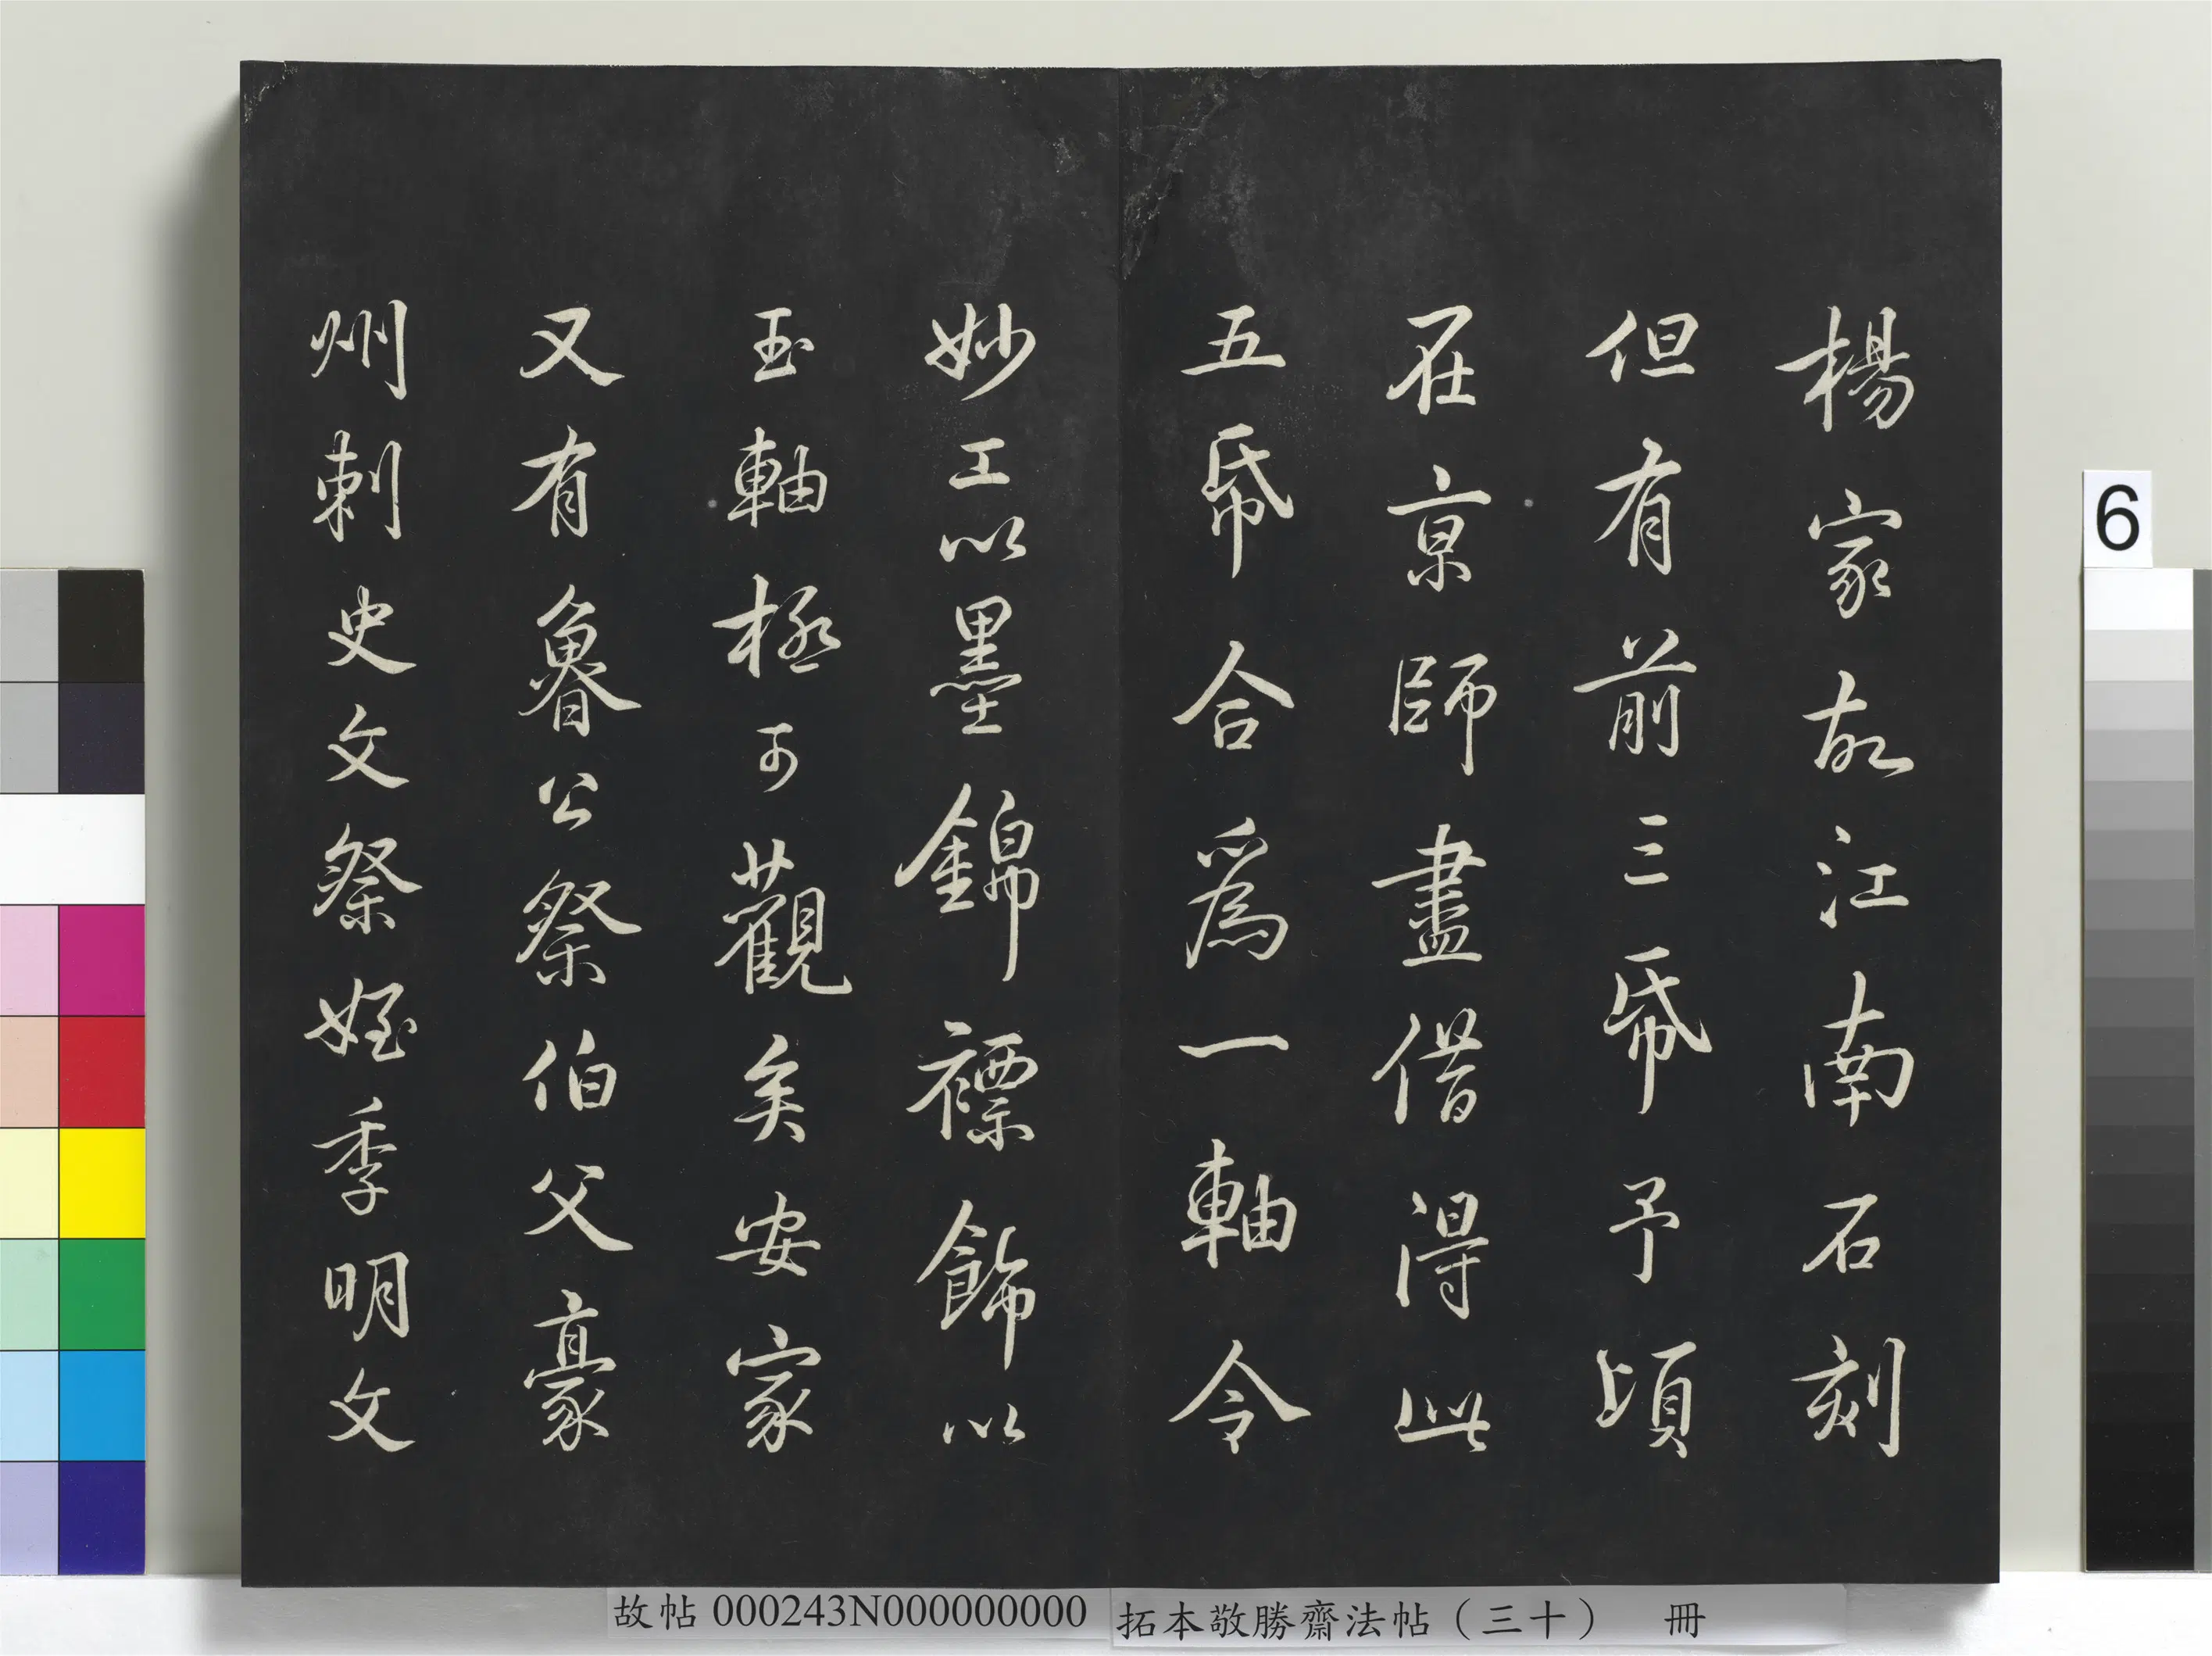 楊家故江南石刻
但有前三帋予頃
在京師盡借得此
五帋合為一軸令
妙工以墨錦褾飾以
玉軸極可觀矣安家
又有魯公祭伯父豪
州刺史文祭姪季明文
6
故帖 000243N000000000
拓本敬勝齋法帖（三十） 冊